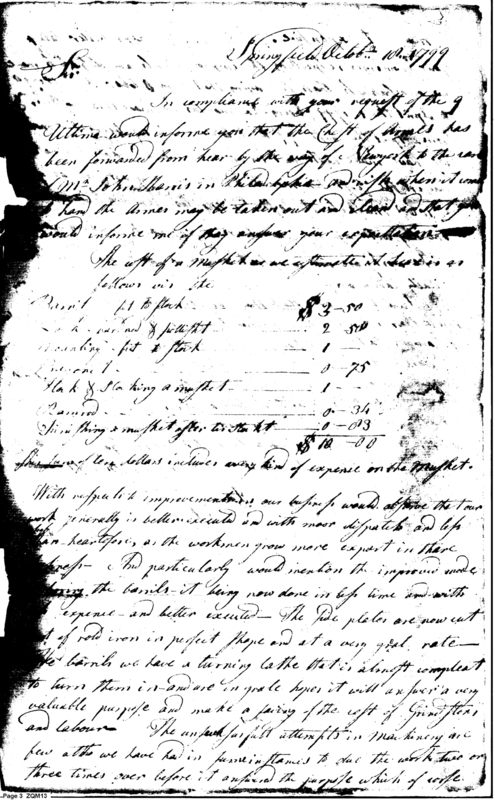 Springfield Octob.r 18th 1799
Sir
In compliance with your request of the 9
Ultimo would informe you that the Chest of Armes has
been forwarded from hear by the way of Newyork to the care
Mr John Harris in Philadelphia and wish when it come
to hand the Armes may be taken out and and that you
would informe me if they answer your expectations
The cost of a Musket as we estimate it here is as
follows viz the
Barril fit to stock $ 3-50
Lock hardned & pollisht 2 50
Mounting fit to stock 1
0 75
Stock & Stocking a musket 1
Ramrod 0-34
Finishing a musket after tis stockt 0-83
$ 10 -00
of ten dollars includes every kind of expence on the Musket.
With respect to improvements in our business would observe that our
work generally is better executed and with more dispatch and less
than heartofore, as the workmen grow more expart in thare
And particularly would mention the improved mode
the barrils it being now done in less time and with
expence and better executed - The Side plates are now cut
of rold iron in perfect shape and at a very grat rate
barrils we have a turning lathe that is almost compleat
to turn them in and are in grate hopes it will answer a very
valuable purpose and make a saving of the cost of Grindstons
and labour The unsuckesfull attempts in Machinery are
few altho we have had in some instances to due the work two or
three times over before it answerd the purpose which of corse
Page 3 ZQM13